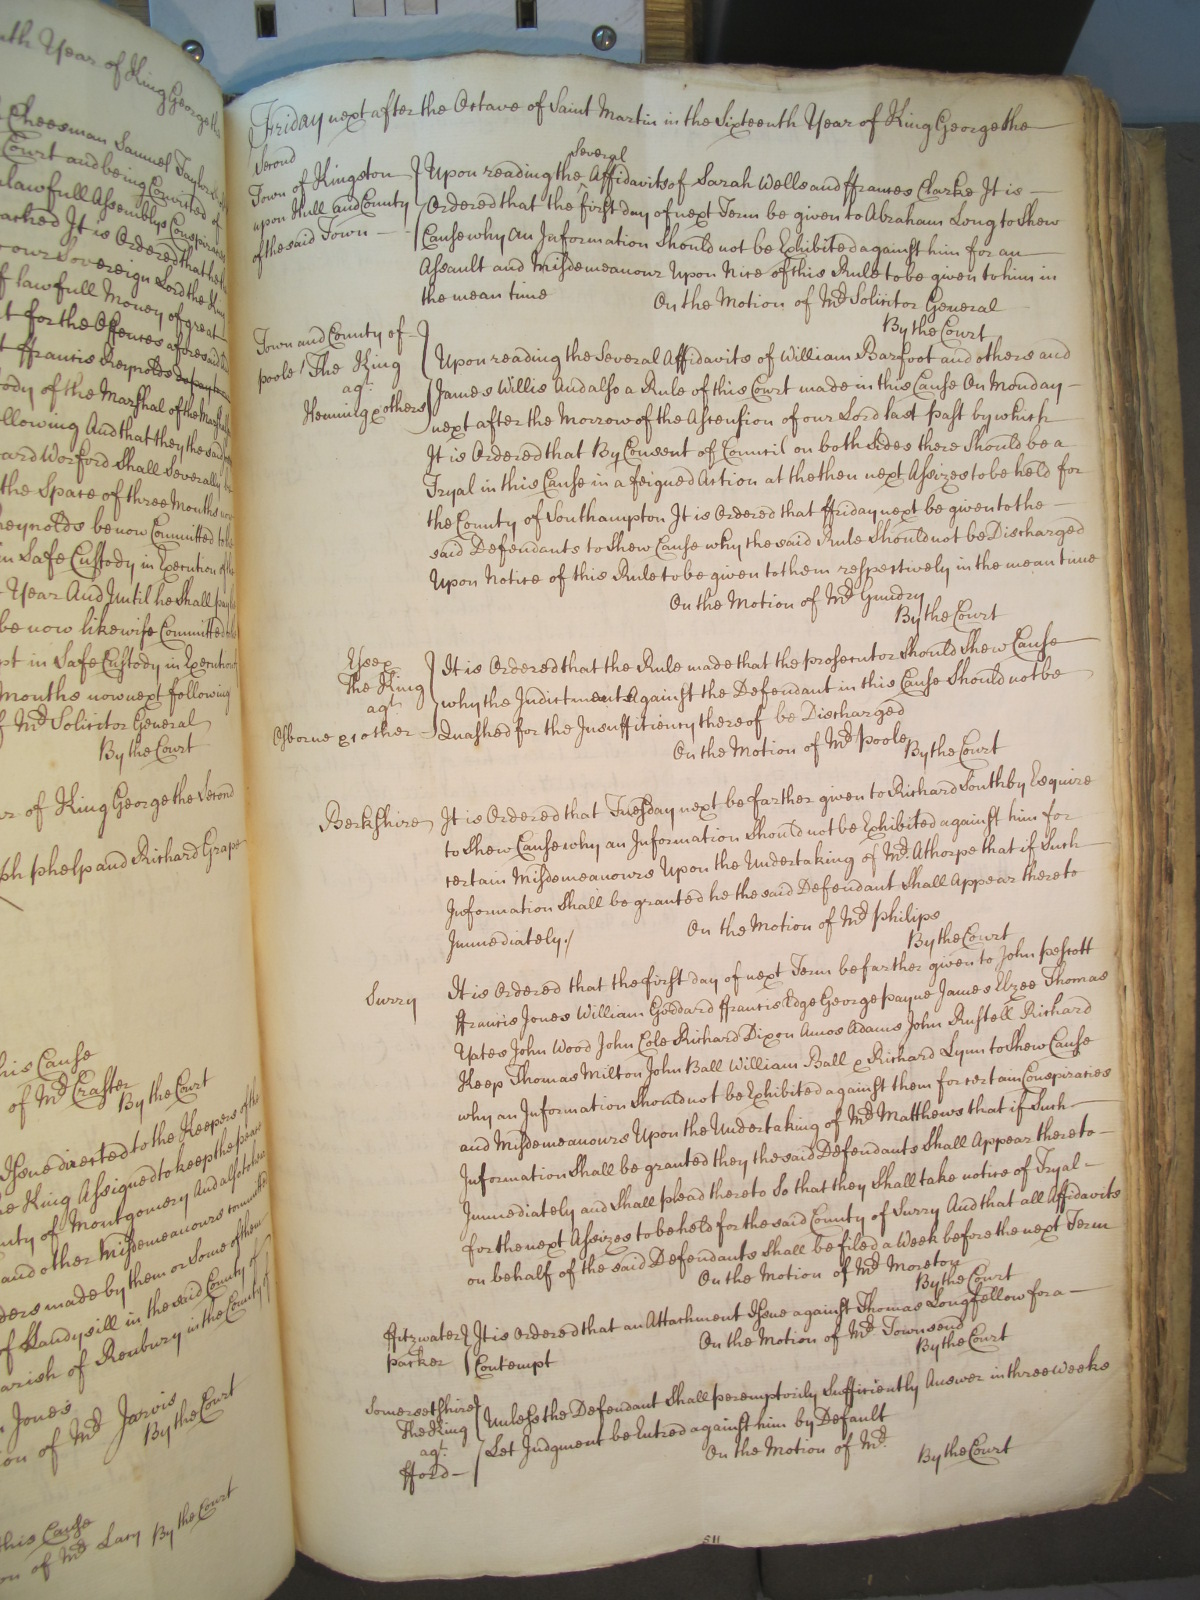 uth Year of King George the
Cheesman Samuel Taylor
Court and being Convicted of
nlawfull Assemblys Conspiracies
It is Ordered that
our Sovereign Lord the King
f lawfull Money of great
t for the Offences aforesaid
t ffrancis Reynolds
tody of the Marshal of the
llowing And that they the said
ard Worford Shall Severally
the Space of three Months
Reynolds be now Committed to
in Safe Custody in Execution of
Year And Until he Shall pay
be now likewise Committed
pt in Safe Custody in Execution
Months now next following
f Mr. Solicitor General
By the Court
ar of King George the Second
ph phelp and Richard Grape
his Cause
of Mr. Craster
By the Court
Issue directed to the Keepers of the
he King Assigned to keep the peace
unty of Montgomery And also to hear
and other Misdemeanours committed
ders made by them or Some of them
of Llandysill in the said County of
parish of Kenbury in the County of
Jones
on of Mr. Jarvis
By the Court
this Cause
on of Mr. Lacy By the Court
Friday next after the Octave of Saint Martin in the Sixteenth Year of King George the
Second
Town of Kingston
upon Hull and County
of the said Town
Several
Upon reading the Affidavits of Sarah Wells and ffrances Clarke It is
Ordered that the first day of next Term be given to Abraham Long to Shew
Cause why an Information Should not be Exhibited against him for an
Assault and Misdemeanour Upon Notice of this Rule to be given to him in
the mean time
On the Motion of Mr. Solicitor General
By the Court
Town and County of
poole The King
agt.
Henning & others
Upon reading the Several Affidavits of William Barfoot and others and
James Willis And also a Rule of this Court made in this Cause On Monday
next after the Morrow of the Ascension of our Lord last past by which
It is Ordered that By Consent of Council on both Sides there Should be a
Tryal in this Cause in a feigned Action at the then next Assizes to be held for
the County of Southampton It is Ordered that ffriday next be given to the
said Defendants to Shew Cause why the said Rule Should not be Discharged
Upon Notice of this Rule to be given to them respectively in the mean time
On the Motion of Mr. Gundry
By the Court
Essex
The King
agt.
Osborne & other
It is Ordered that the Rule made that the prosecutor Should Shew Cause
why the Indictment Against the Defendant in this Cause Should not be
Quashed for the Insufficiency thereof be Discharged
On the Motion of Mr. poole
By the Court
Berkshire
It is Ordered that Tuesday next be farther given to Richard Southby Esquire
to Shew Cause why an Information Should not be Exhibited against him for
certain Misdemeanours Upon the Undertaking of Mr. Athorpe that if Such
Information Shall be granted he the said Defendant Shall Appear thereto
Immediately./
On the Motion of Mr. philips
By the Court
Surry
It is Ordered that the first day of next Term be farther given to John pescott
ffrancis Jones William Goddard ffrancis Edge George payne James Elzee Thomas
Yates John Wood John Cole Richard Dixon Amos Adams John Rustell Richard
Keep Thomas Milton John Ball William Ball & Richard Lynn to Shew Cause
why an Information Should not be Exhibited against them for certain Conspiracies
and Misdemeanours Upon the Undertaking of Mr. Matthews that if Such
Information Shall be granted they the said Defendants Shall Appear thereto
Immediately and Shall plead thereto So that they Shall take notice of Tryal
for the next Assizes to be held for the said County of Surry And that all Affidavits
on behalf of the said Defendants Shall be filed a Week before the next Term
On the Motion of Mr. Moreton
By the Court
ffitzwater
parker
It is Ordered that an Attachment Issue against Thomas Longfellow for a
Contempt
On the Motion of Mr. Townsend
By the Court
Somersetshire
The King
agt.
fford
Unless the Defendant Shall peremptorily Sufficiently Answer in three Weeks
Let Judgment be Entred against him by Default
On the Motion of Mr.
By the Court